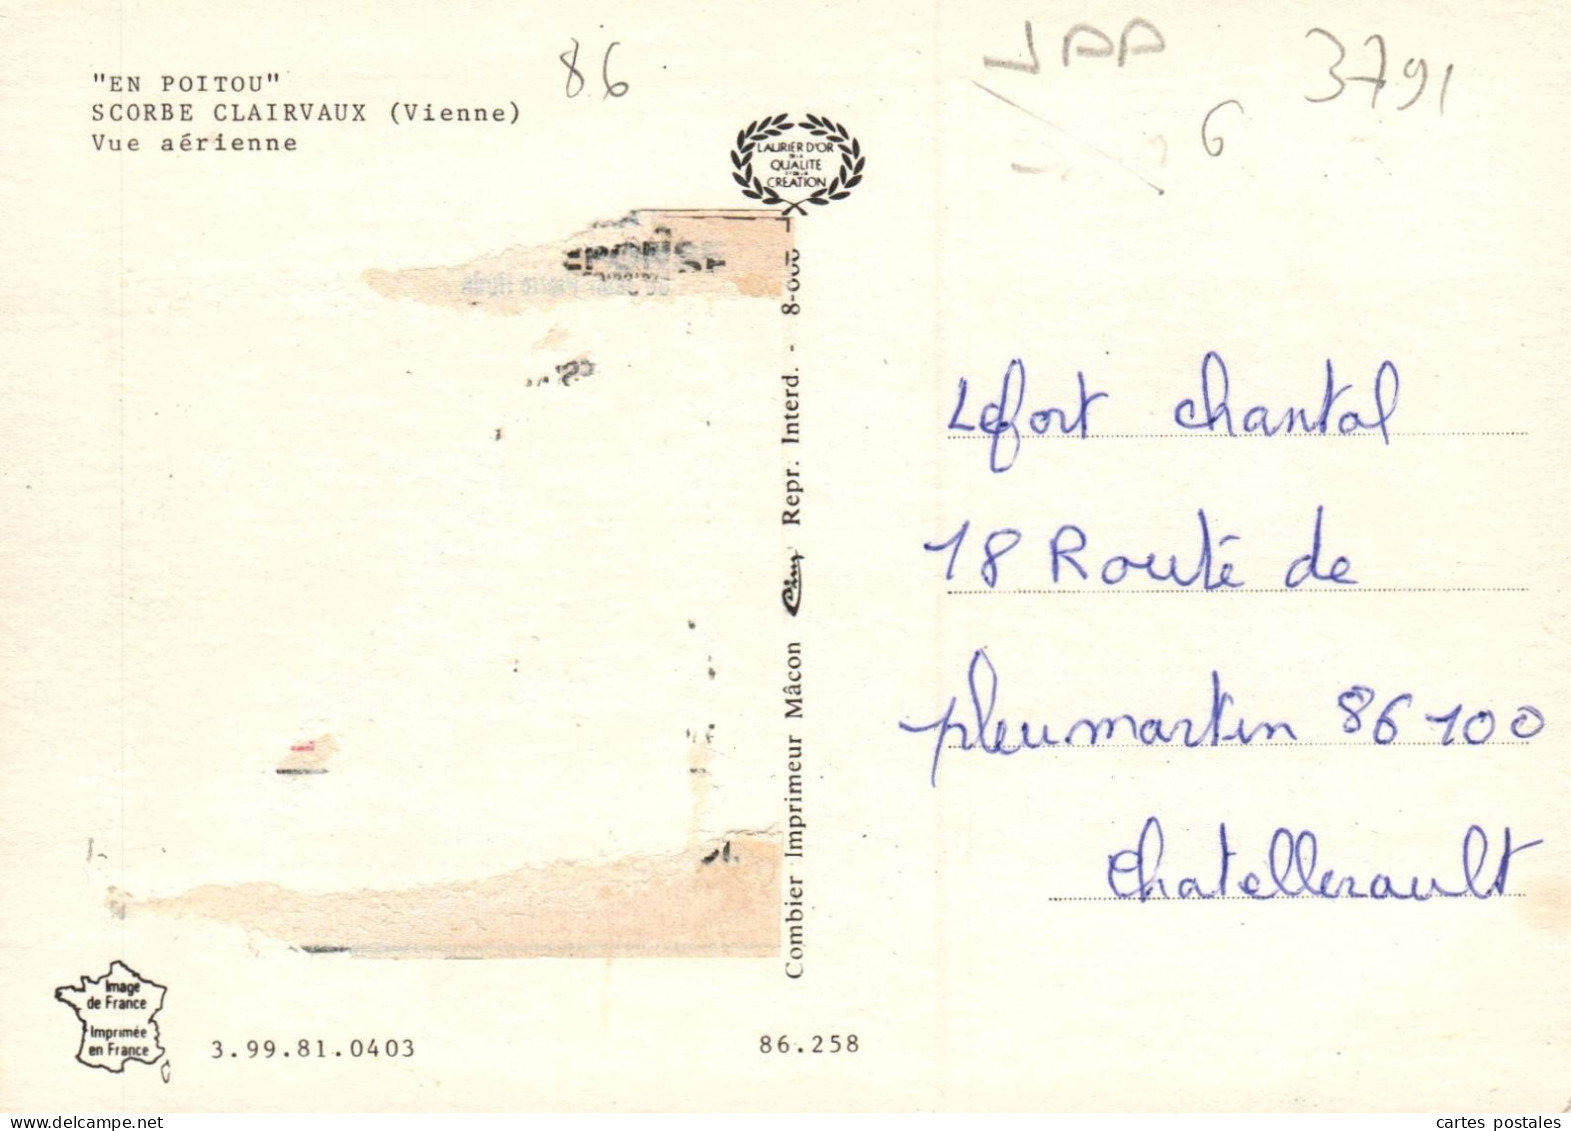 "EN POITOU"
SCORBE CLAIRVAUX (Vienne)
Vue aérienne
86
3791
6
LAURIER D'OR
DE LA
QUALITE
ET DE LA
CREATION
Combier Imprimeur Mâcon Cim Repr. Interd. -
Lefort chantal
18 Route de
pleumartin 86100
chatellerault
Image
de France
Imprimée
en France
3.99.81.0403
86.258
www.delcampe.net
cartes postales